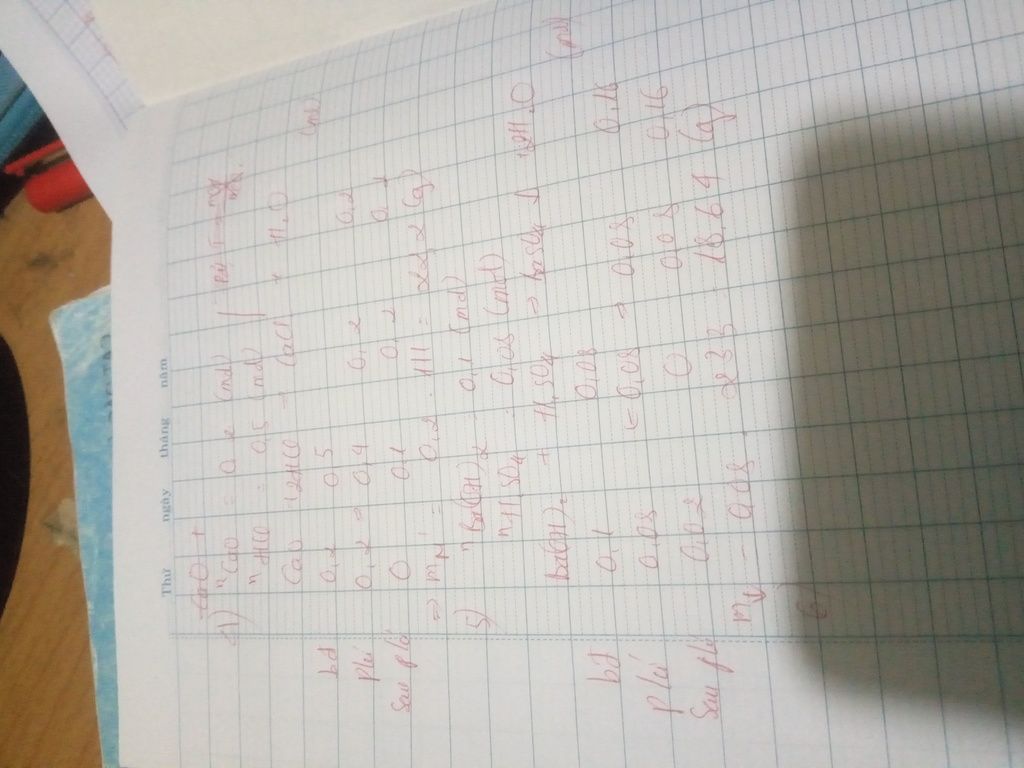 Thứ ngày tháng năm
4)
nCaO = 0,2 (mol)
nHCl = 0,5 (mol)
CaO + 2HCl → CaCl + H2O
bđ 0,2 0,5 (mol)
pứ 0,2 → 0,4 0,2 0,2
Sau pứ 0 0,1 0,2
⇒ m = 0,2 . 111 = 22,2 (g)
5) nBa(OH)2 = 0,1 (mol)
nH2SO4 = 0,08 (mol)
Ba(OH)2 + H2SO4 → BaSO4 ↓ + 2H2O
bđ 0,1 0,08 (mol)
pứ 0,08 ← 0,08 → 0,08 0,16
Sau pứ 0,02 0 0,08 0,16
m↓ = 0,08 . 233 = 18,64 (g)
6)